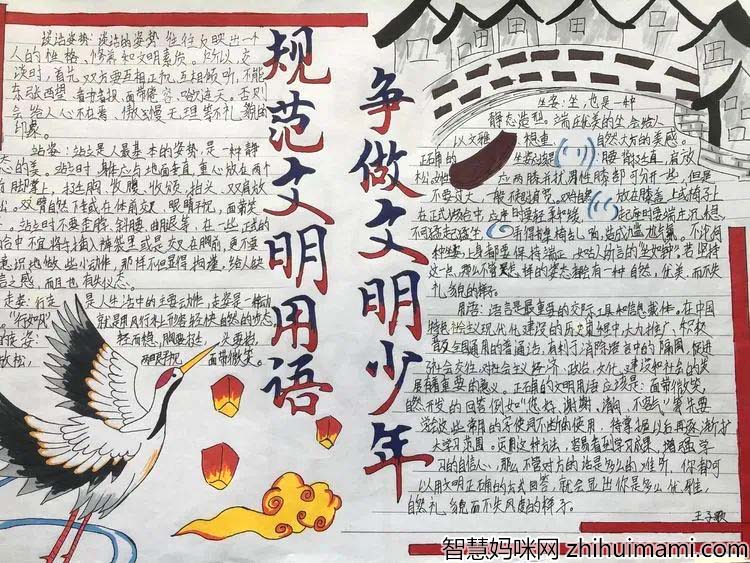 规范文明用语
争做文明少年
谈话姿势:谈话的姿势往往反映出一个
人的性格、修养和文明素质。所以,交
谈时,首先双方要互相正视、互相倾听,不能
东张西望、看书看报、面带倦容、哈欠连天。否则
会给人心不在焉、傲慢无理等不礼貌的
印象。
站姿:站立是人最基本的姿势,是一种静
态的美。站立时,身体应与地面垂直,重心放在两个
前脚掌上,挺胸、收腹、收颌、抬头、双肩放
松。双臂自然下垂或在体前交叉,眼睛平视,面带笑
容。站立时不要歪脖、斜腰、曲腿等,在一些正式的
场合中不宜将手插入裤袋里或交叉在胸前,更不要
意识地做些小动作,那样不但显得拘谨,给人缺
之感,而且也有失仪态。
走姿:行走 是人生活中的主要动作,走姿是一种动
“行如风” 就是用风行水上来形容轻快自然的步态
轻而稳,胸要挺,头要抬,
放松, 两眼平视, 面带微笑。
坐姿:坐,也是一种
静态造型。端正优美的坐会给人
以文雅、稳重、自然大方的美感。
正确的 坐姿 腰背挺直,肩放
松。女性 应两膝并拢;男性膝部可分开一些,但是
不要过大,一般不超过肩宽。双手自然 放在膝盖上或椅子上
在正式场合中,入座时要轻柔和缓, 起座时要端庄沉稳,
不可猛起猛坐 弄得桌椅乱响,造成尴尬气氛。不论何
种坐姿,上身都要保持端正,如古人所言的“坐如钟”。若坚持
这一点,那么不管怎样的姿态都会有一种自然、优美,而不失
礼貌的样子。
用语:语言是最重要的交际工具和信息载体。在中国
特色社会主义现代化建设的历史进程中大力推广、积极
普及全国通用的普通话,有利于消除语言中的隔阂,促进
社会交往,对社会主义经济、政治、文化、建设和社会的发
展有重要的意义。正确的文明用语应该是:面带微笑,
自然开发的回答例如“您好、谢谢、请问、不客气”等先要
学会这些常用的字使用不断的使用,待掌握以后再逐渐扩
大学习范围。运用这种方法,容易看到学习成果,增强学
习的自信心,那么不管对方的话是多么的难听,你都可
以用文明正确的方式回答,就会显出你是多么优雅、
自然礼貌而不失风度的样子。
王子歌
智慧妈咪网 zhihuimami.com